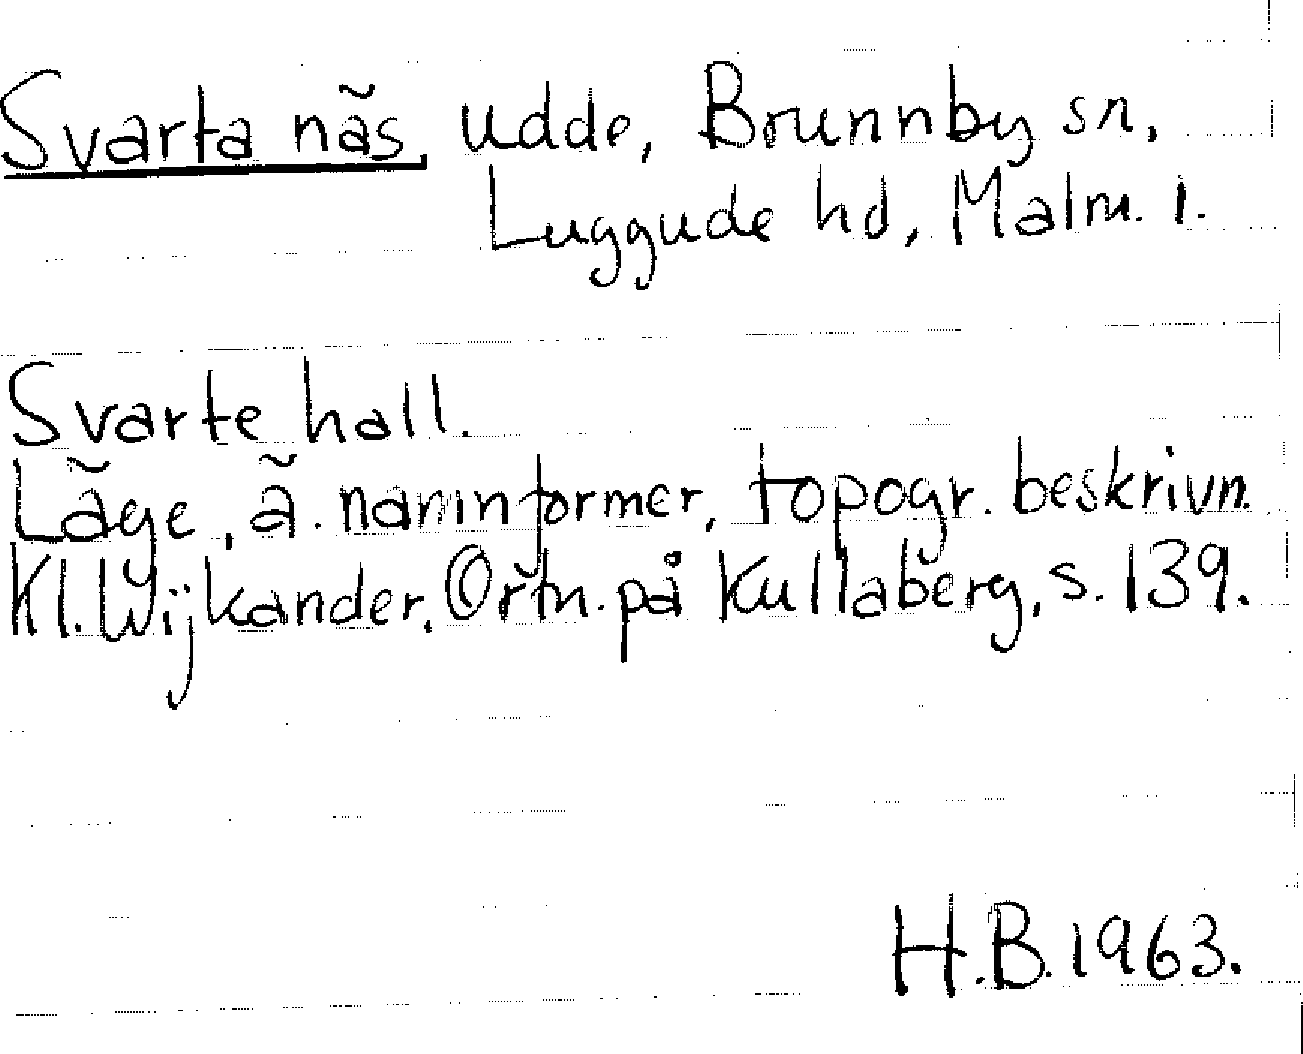 Svarta näs, udde, Brunnby sn,
Luggude hd, Malm. l.
Svarte hall.
Läge, ä. namnformer, topogr. beskrivn.
Kl. Wijkander, Ortn. på Kullaberg, s. 139.
H.B. 1963.